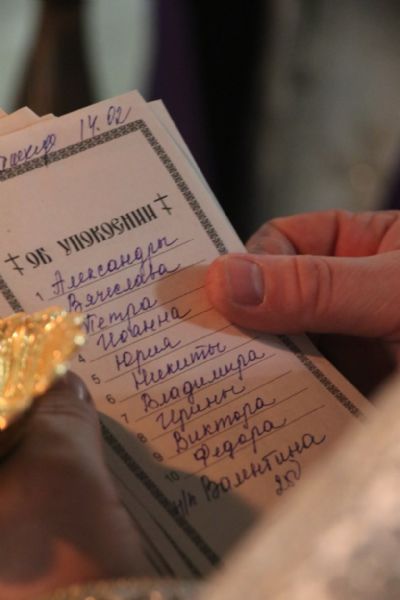 14.02
ОБ УПОКОЕНИИ
1 Александры
Вячеслава
Петра
4 Иоанна
5 Юрия
6 Никиты
7 Владимира
8 Ирины
9 Виктора
10 Федора
н/п Валентина